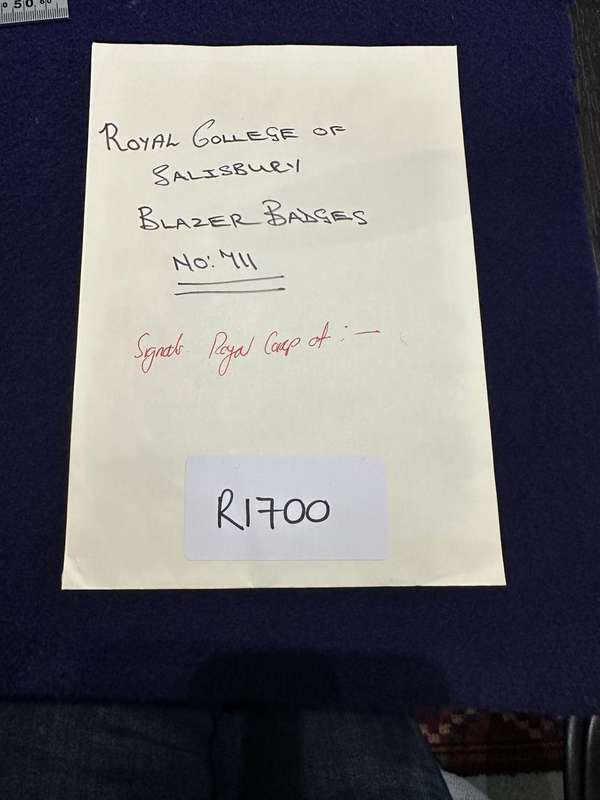 50 60
ROYAL COLLEGE OF
SALISBURY
BLAZER BADGES
NO: 711
Signals Royal Corp of : —
R1700